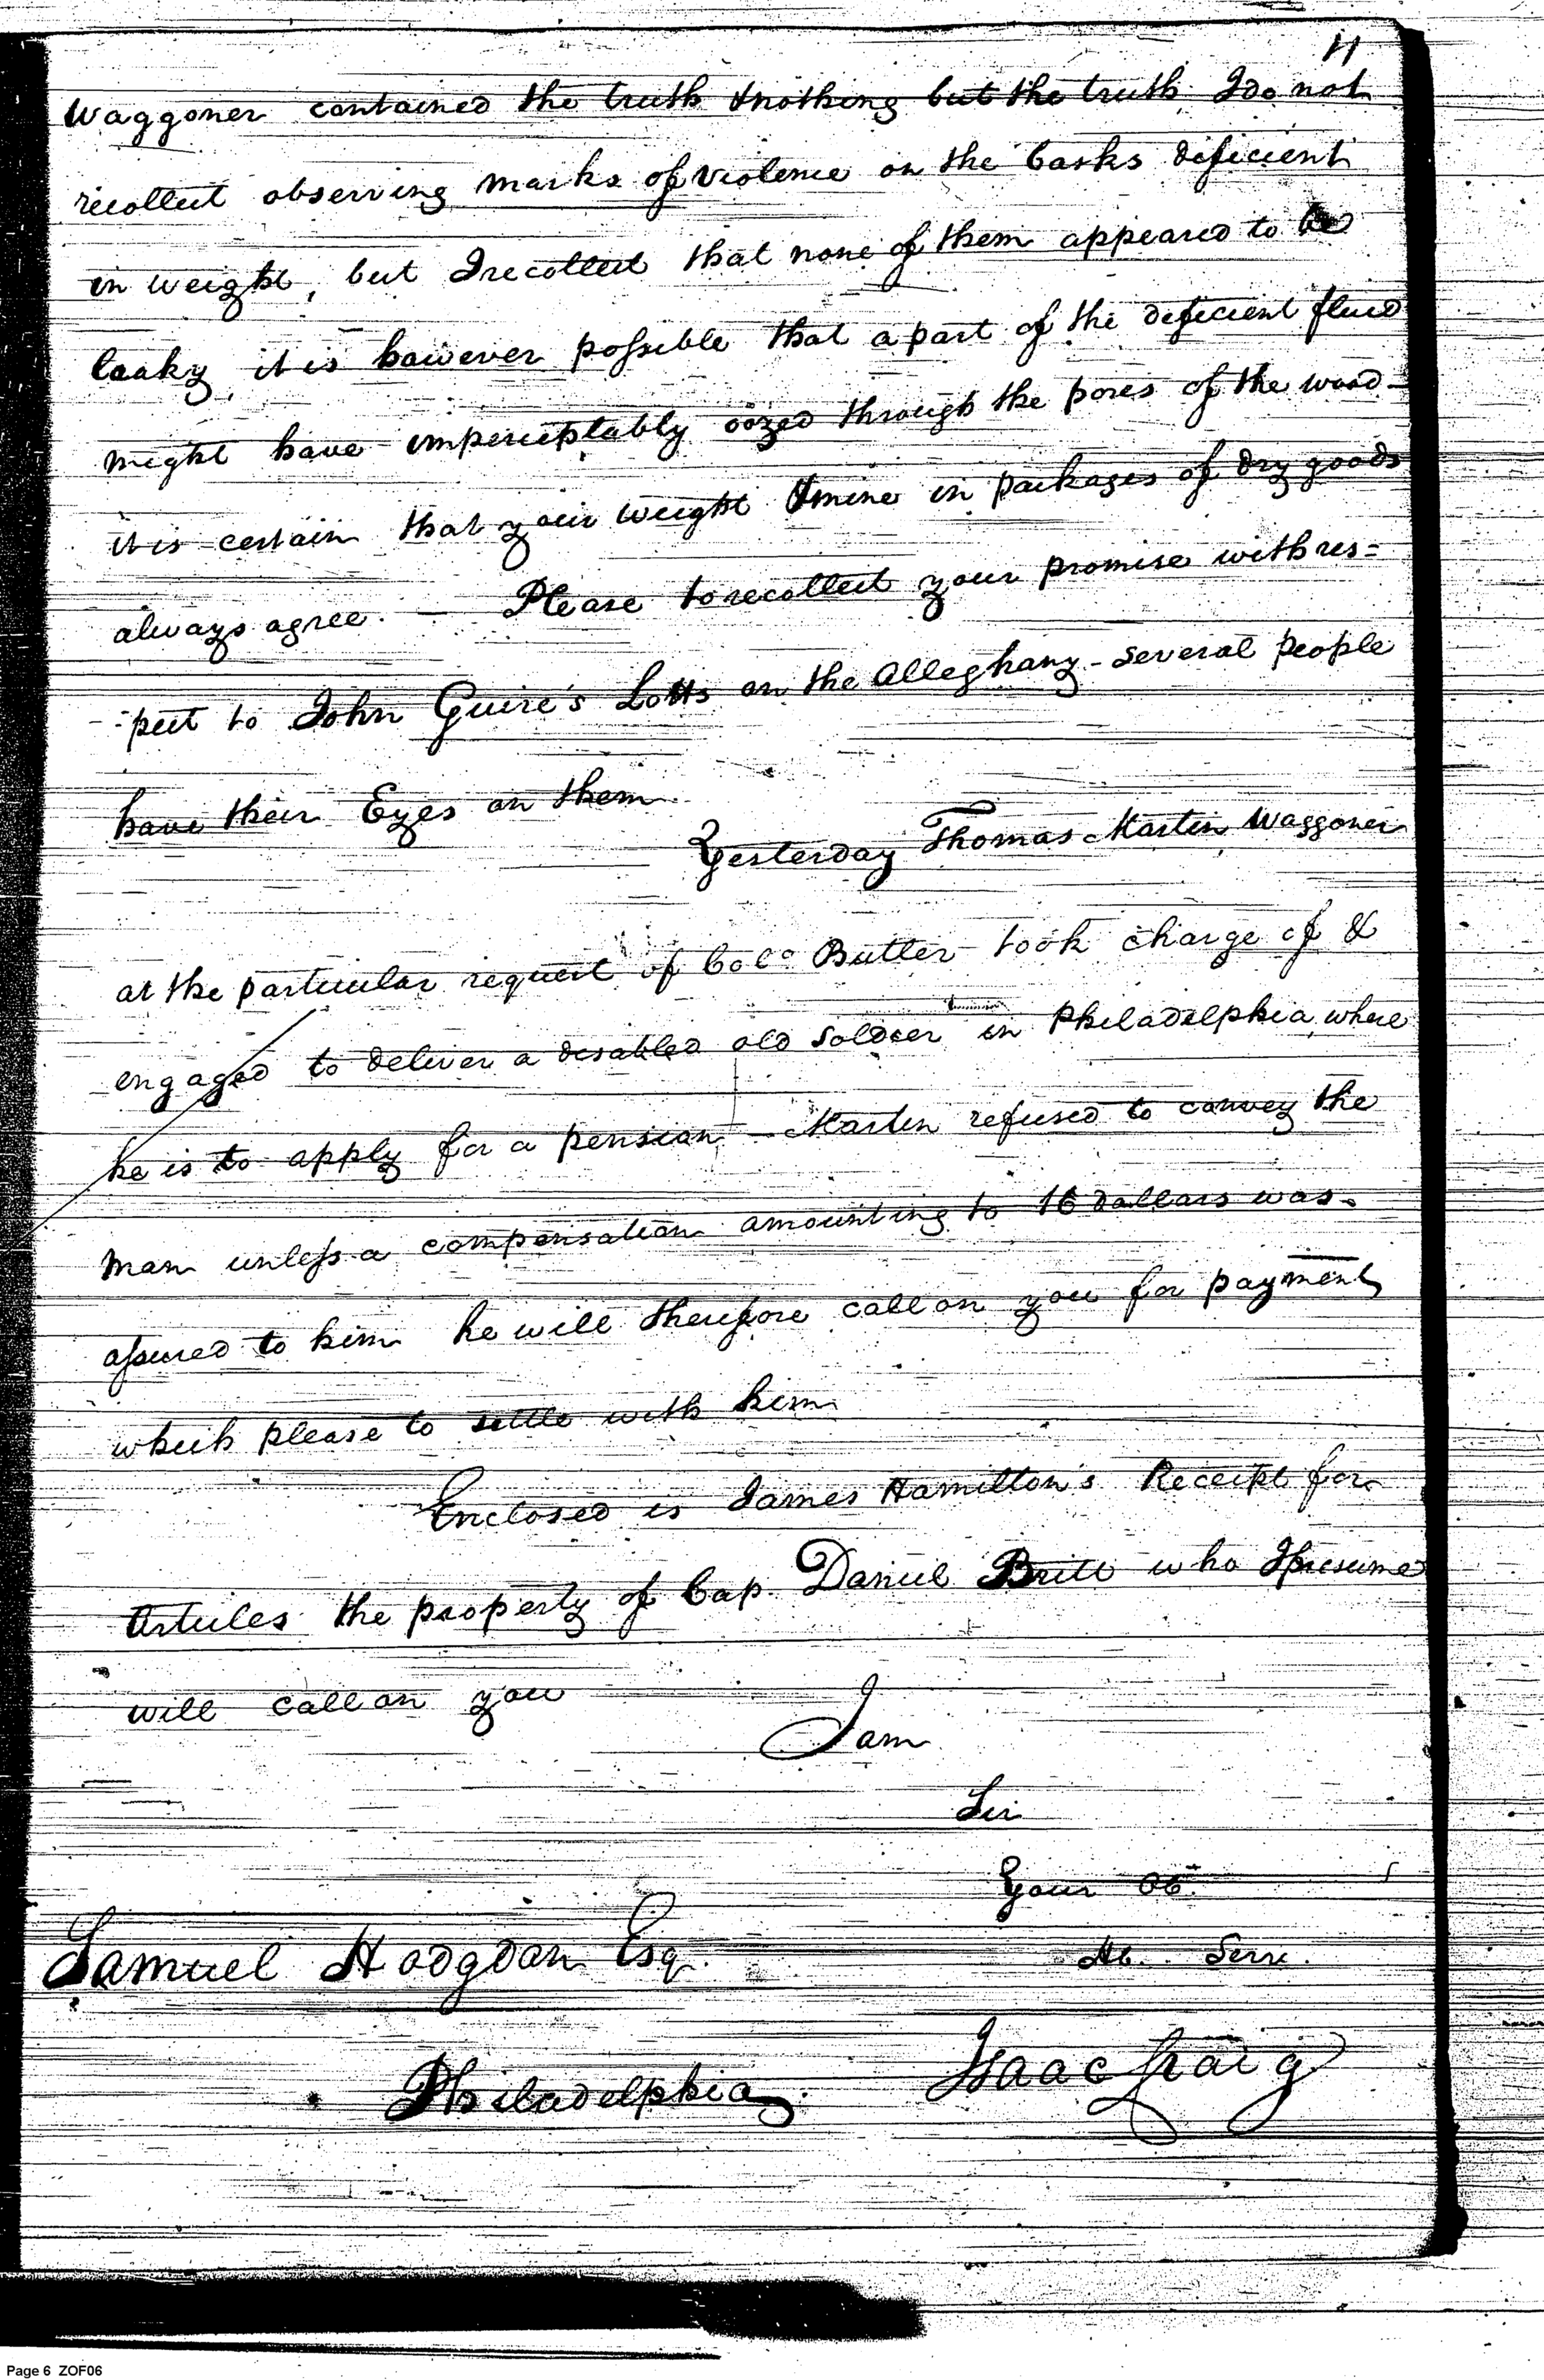 11
Waggoner contained the truth & nothing but the truth I do not
recollect observing marks of violence on the Casks deficient
in weight, but I recollect that none of them appeared to be
leaky, it is however possible that a part of the deficient fluid
might have imperceptably oozed through the pores of the wood -
it is certain that your weight & mine in packages of dry goods
always agree. — Please to recollect your promise with res=
-pect to John Guire's Lotts on the Alleghany - Several people
have their Eyes on them
Yesterday Thomas Martin Waggoner
at the particular request of Colo Butler took charge of &
engaged to deliver a disabled old Soldier in Philadelphia, where
he is to apply for a pension - Martin refused to convey the
man unless a compensation amounting to 16 dollars was
assured to him he will therefore call on you for payment
which please to settle with him
Enclosed is James Hamilton's Receipt for
Articles the property of Cap. Daniel Britt who I presume
will call on you
I am
Sir
Your Ob.
Hb. Serv.
Samuel Hodgdon Esq.
Isaac Craig
Philadelphia
Page 6 ZOF06